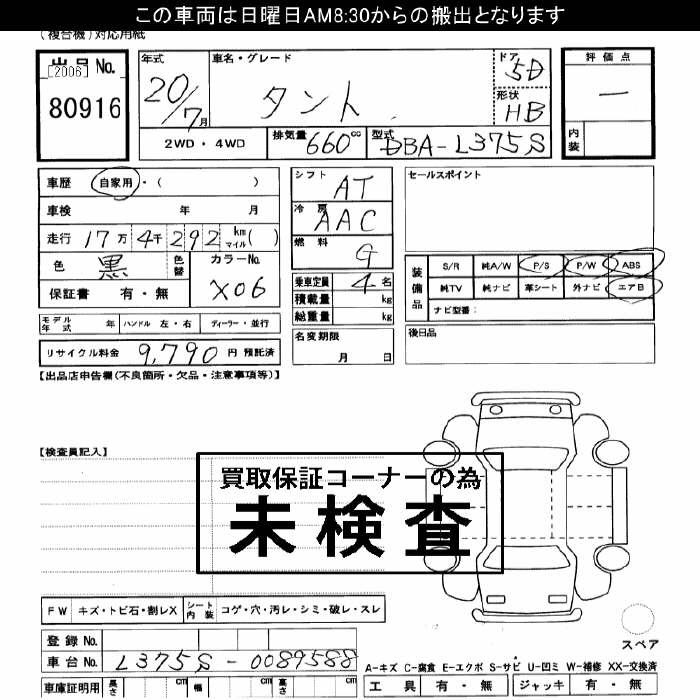 この車両は日曜日AM8:30からの搬出となります
(複合機)対応用紙
出品No.
[2006]
80916
年式
20/7月
車名・グレード
タント
ドア
5D
形状
HB
評価点
―
内装
2WD・4WD
排気量 660cc
型式 DBA-L375S
車歴 自家用・( )
車検 年 月
走行 17万4千292 km マイル( )
色 黒 色替 カラーNo. X06
保証書 有・無
シフト AT
冷房 AAC
燃料 G
乗車定員 4名
積載量 kg
総重量 kg
セールスポイント
装備品
S/R 純A/W P/S P/W ABS
純TV 純ナビ 革シート 外ナビ エアB
ナビ型番:
モデル年式 年 ハンドル 左・右 ディーラー・並行
名変期限
月 日
後日品
リサイクル料金 9,790 円 預託済
【出品店申告欄(不良箇所・欠品・注意事項等)】
【検査員記入】
買取保証コーナーの為
未検査
FW キズ・トビ石・割レX シート内装 コゲ・穴・汚レ・シミ・破レ・スレ
スペア
登録No.
車台No. L375S-0089588
車庫証明用 長さ cm 幅 cm 高さ cm
A-キズ C-腐食 E-エクボ S-サビ U-凹ミ W-補修 XX-交換済
工具 有・無 ジャッキ 有・無